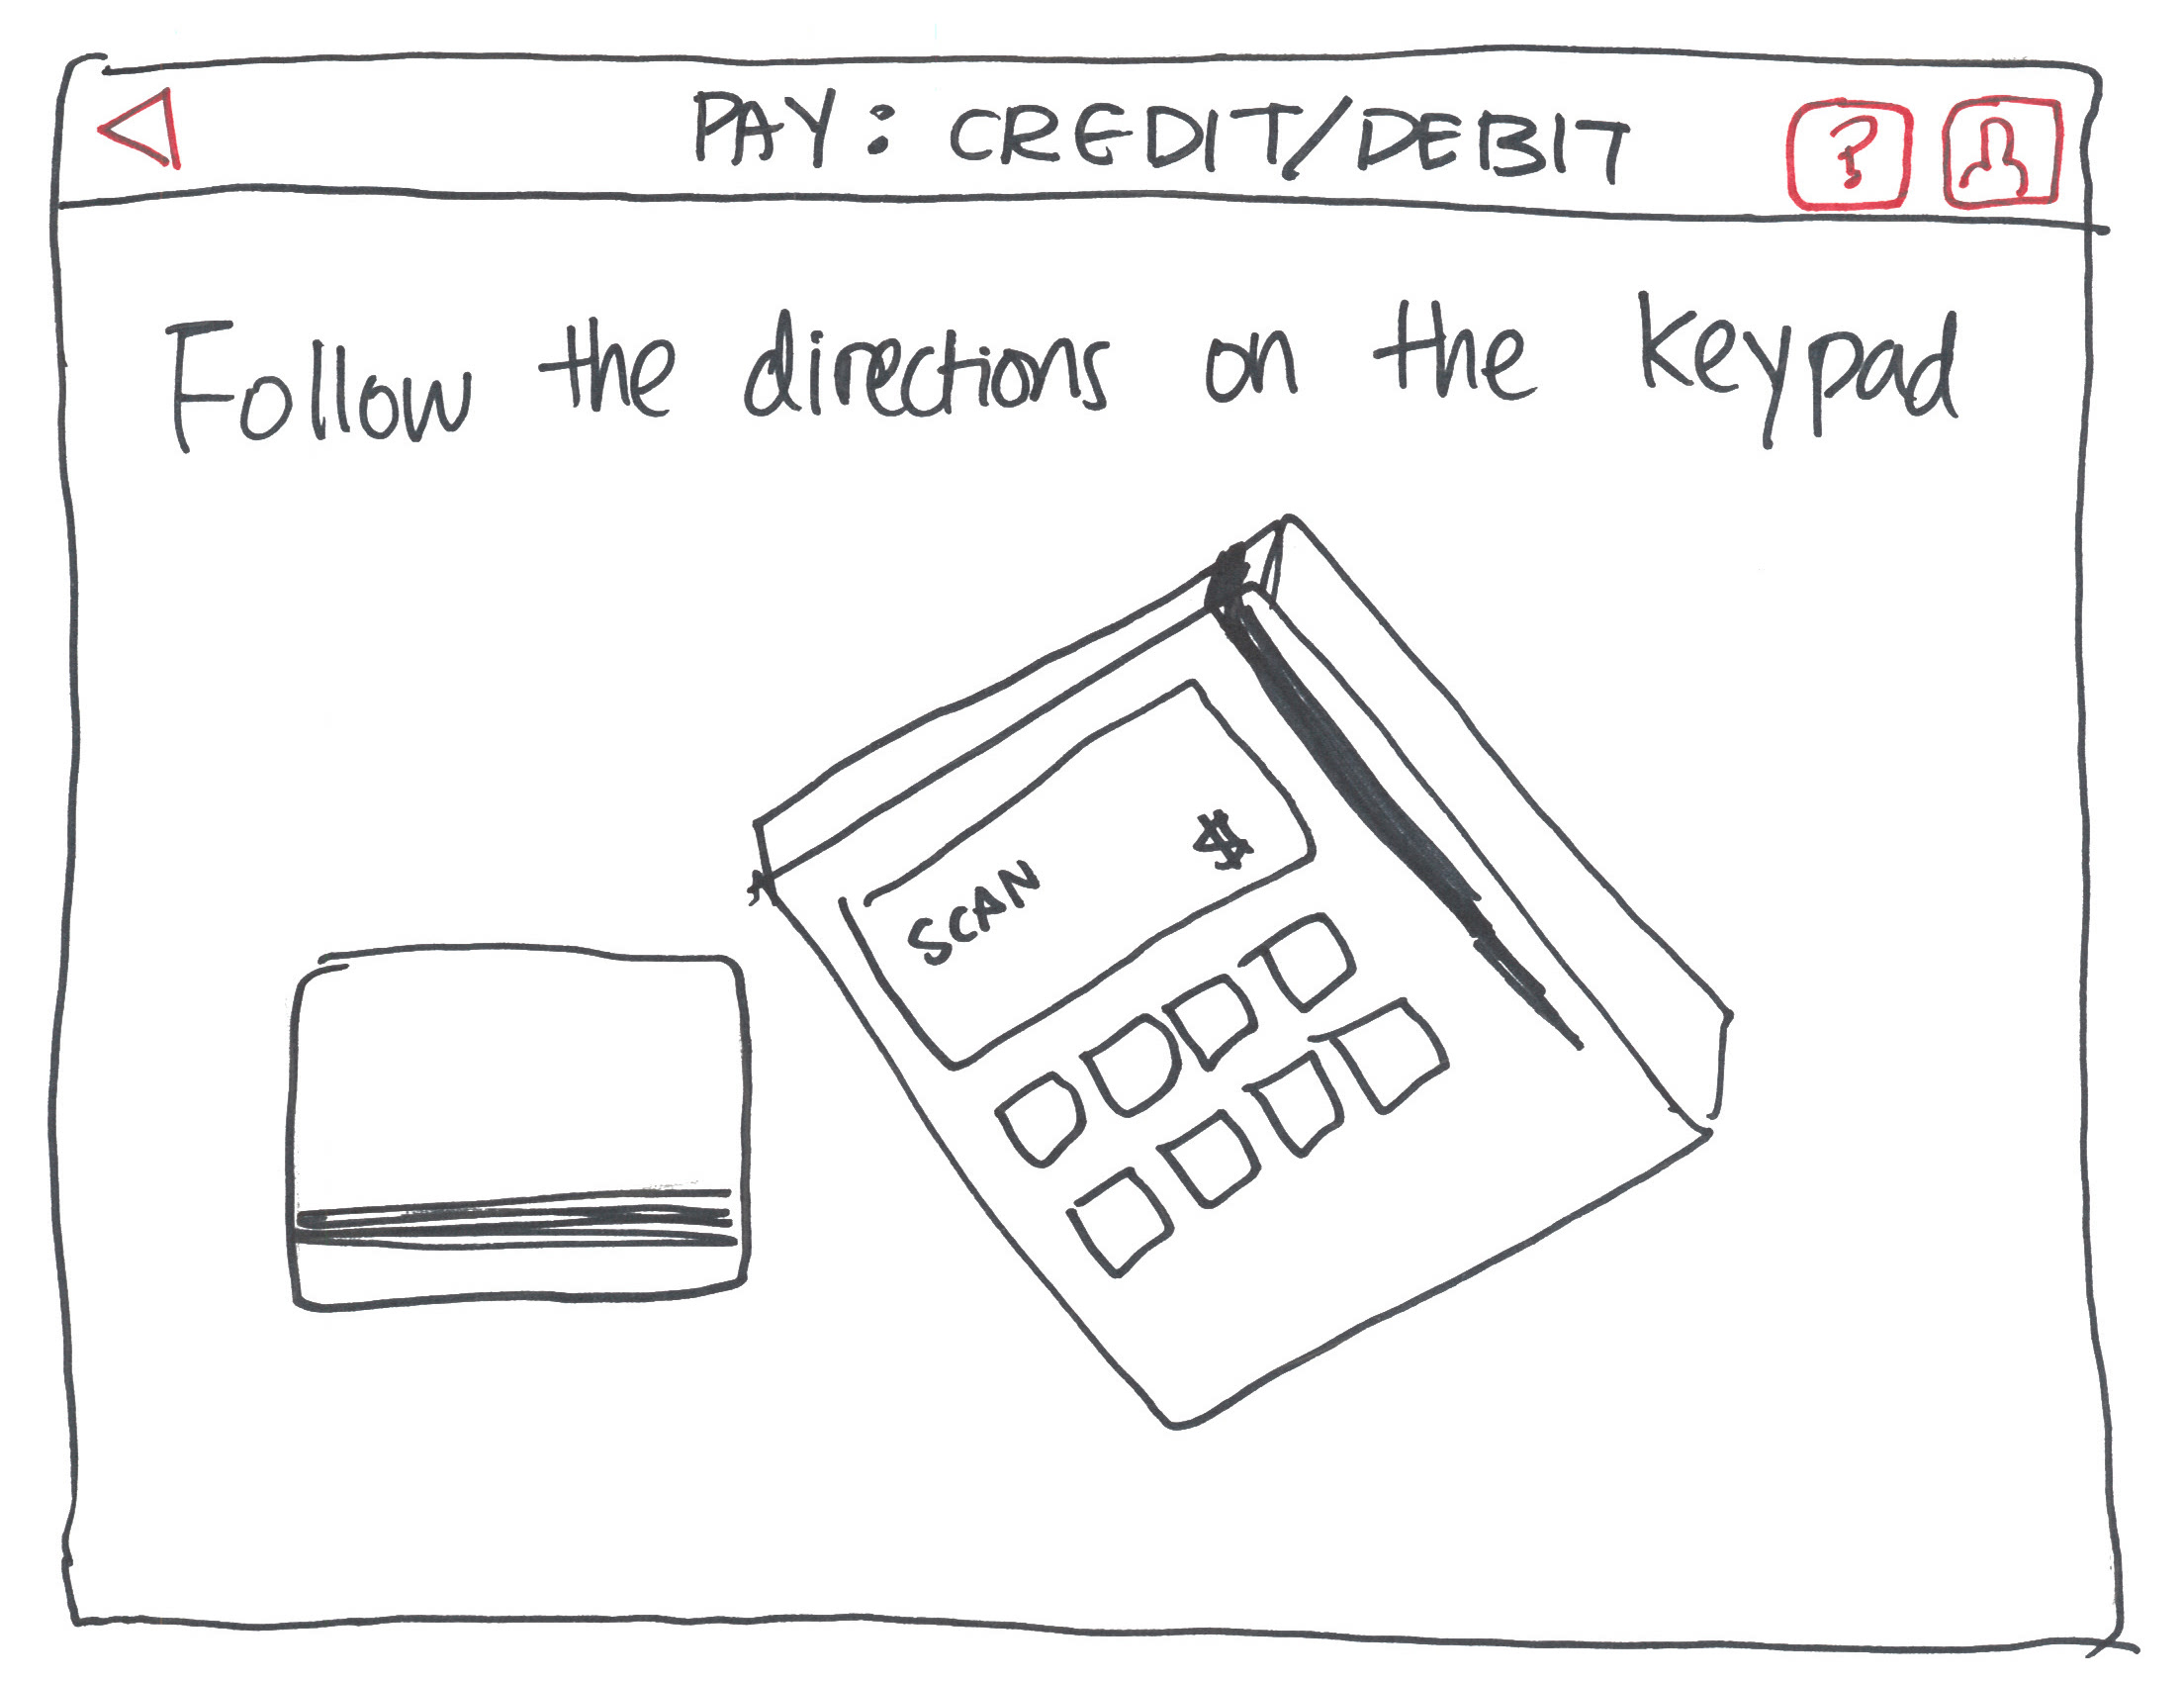 PAY: CREDIT/DEBIT ?
Follow the directions on the keypad
SCAN $